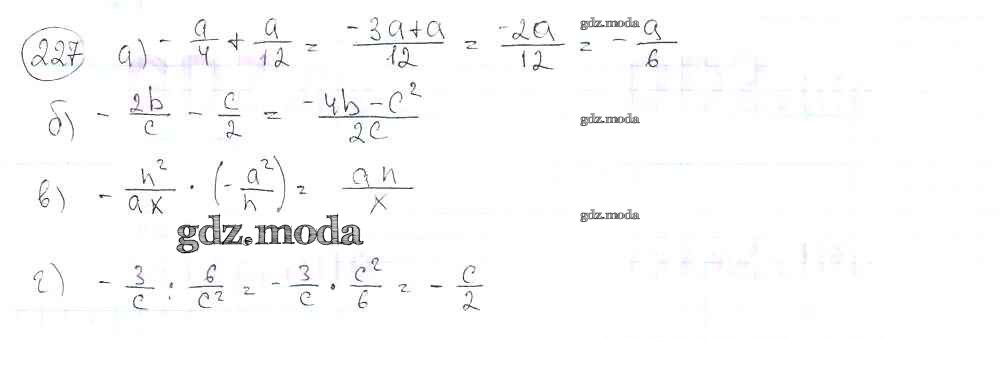 gdz.moda
227 а) - a/4 + a/12 = -3a+a/12 = -2a/12 = - a/6
б) - 2b/c - c/2 = -4b-c²/2c
gdz.moda
в) - n²/ax · (- a²/n) = an/x
gdz.moda
gdz.moda
г) - 3/c : 6/c² = - 3/c · c²/6 = - c/2